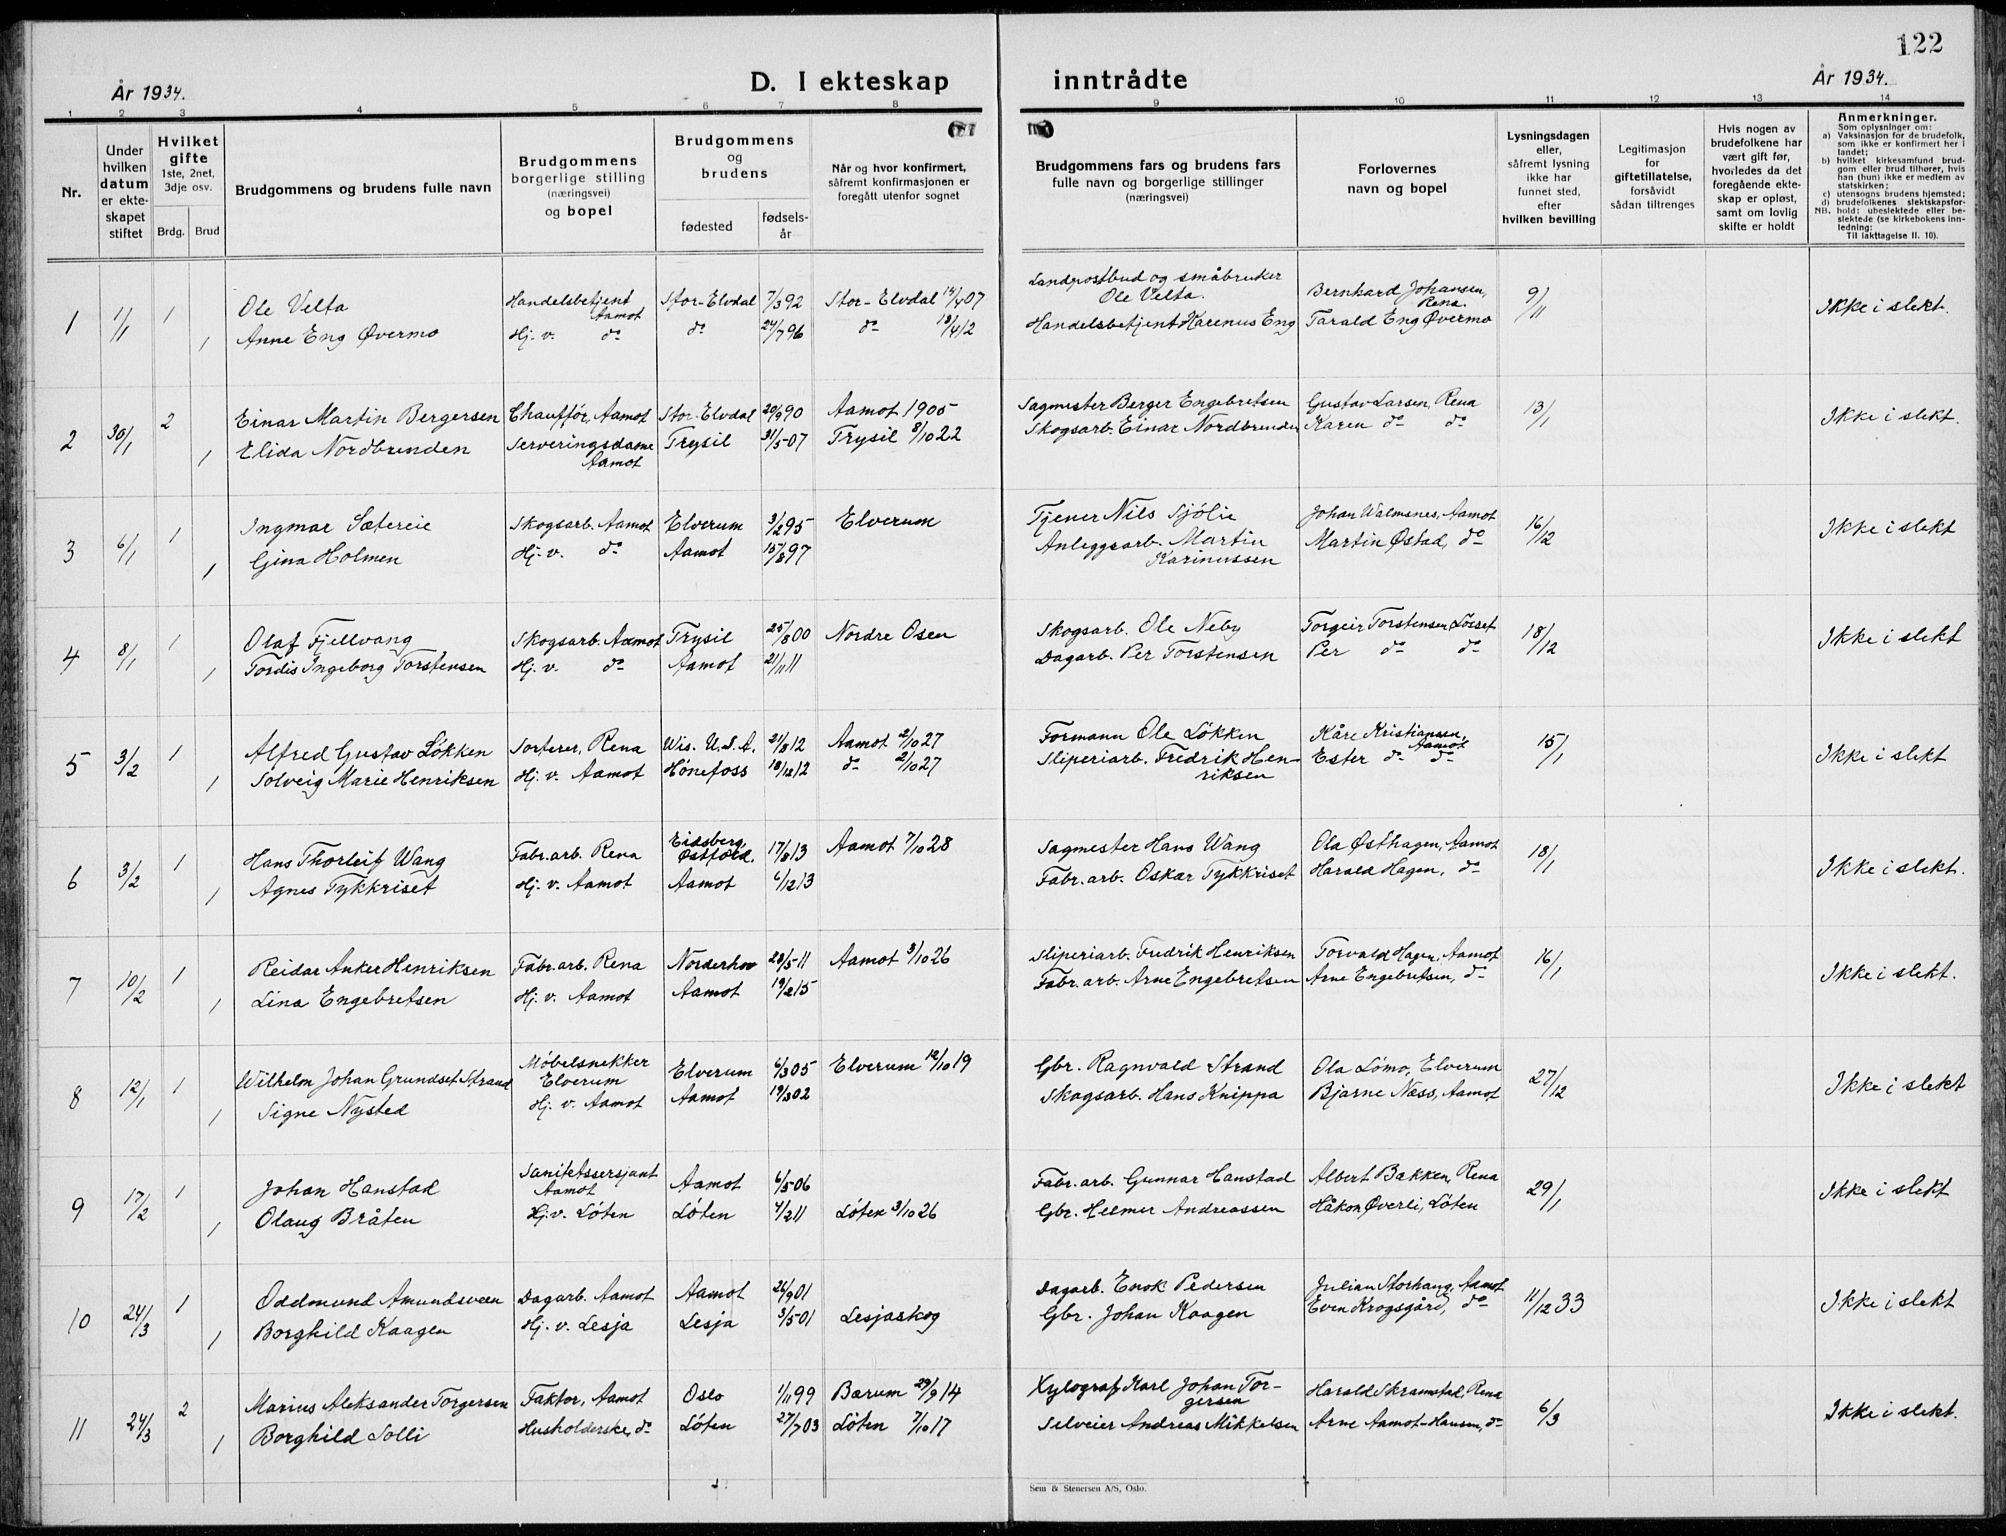 122
År 1934.
D. I ekteskap inntrådte
År 1934.
1 2 3 4 5 6 7 8 9 10 11 12 13 14
Nr.
Under hvilken datum er ekteskapet stiftet
Hvilket gifte 1ste, 2net, 3dje osv.
Brdg. Brud
Brudgommens og brudens fulle navn
Brudgommens borgerlige stilling (næringsvei) og bopel
Brudgommens og brudens
fødested
fødselsår
Når og hvor konfirmert, såfremt konfirmasjonen er foregått utenfor sognet
Brudgommens fars og brudens fars fulle navn og borgerlige stillinger (næringsvei)
Forlovernes navn og bopel
Lysningsdagen eller, såfremt lysning ikke har funnet sted, efter hvilken bevilling
Legitimasjon for giftetillatelse, forsåvidt sådan tiltrenges
Hvis nogen av brudefolkene har vært gift før, hvorledes da det foregående ekteskap er opløst, samt om lovlig skifte er holdt
Anmerkninger.
Som oplysninger om:
a) Vaksinasjon for de brudefolk, som ikke er konfirmert her i landet;
b) hvilket kirkesamfund brudgom eller brud tilhører, hvis han (hun) ikke er medlem av statskirken;
c) utensogns brudens hjemsted;
d) brudefolkenes slektskapsforhold: ubeslektede eller beslektede (se kirkebokens innledning: Til iakttagelse II. 10).
NB.
1 1/1 1 Ole Velta Handelsbetjent Aamot Stor-Elvdal 7/3 92 Stor-Elvdal 14/4 07 Landpostbud og småbruker Ole Velta. Bernhard Johansen, Rena. 9/11 Ikke i slekt.
1 Anne Eng Øvermo Hj. v. do do 24/7 96 do 18/4 12 Handelsbetjent Karenus Eng Tarald Eng Øvermo
2 30/1 2 Einar Martin Bergersen Chauffør, Aamot Stor-Elvdal 20/9 90 Aamot 1905 Sagmester Berger Engebretsen Gustav Larsen, Rena 13/1 Ikke i slekt.
1 Elida Nordbrenden Serveringsdame Aamot Trysil 31/5 07 Trysil 8/10 22 Skogsarb. Einar Nordbrenden Karen do do
3 6/1 1 Ingmar Sætereie Skogsarb. Aamot Elverum 3/2 95 Elverum Tjener Nils Sjølie Johan Walmsnes, Aamot 16/12 Ikke i slekt
1 Gina Holmen Hj. v. do Aamot 15/8 97 Anleggsarb. Martin Karinussen Martin Østad, do
4 8/1 1 Olaf Fjellvang Skogsarb. Aamot Trysil 25/8 00 Nordre Osen Skogsarb. Ole Neby Torgeir Torstensen, Løsset 18/12 Ikke i slekt
1 Tordis Ingeborg Torstensen Hj. v. do Aamot 21/1 11 Dagarb. Per Torstensen Per do do
5 3/2 1 Alfred Gustav Løkken Sorterer, Rena Wis. U.S.A. 21/8 12 Aamot 2/10 27 Formann Ole Løkken Kåre Kristiansen, Aamot 15/1 Ikke i slekt
1 Solveig Marie Henriksen Hj. v. Aamot Hønefoss 18/12 12 do 2/10 27 Sliperiarb. Fredrik Henriksen Ester do do
6 3/2 1 Hans Thorleif Wang Fabr. arb. Rena Eidsberg Østfold. 17/8 13 Aamot 7/10 28 Sagmester Hans Wang Ola Østhagen, Aamot 18/1 Ikke i slekt.
1 Agnes Tykkriset Hj. v. Aamot Aamot 6/12 13 Fabr. arb. Oskar Tykkriset Harald Hagen, do
7 10/2 1 Reidar Anker Henriksen Fabr. arb. Rena Norderhov 28/5 11 Aamot 3/10 26 Sliperiarb. Fredrik Henriksen Torvald Hagen, Aamot 16/1 Ikke i slekt.
1 Lina Engebretsen Hj. v. Aamot Aamot 19/2 15 Fabr. arb. Arne Engebretsen Arne Engebretsen, do
8 12/1 1 Wilhelm Johan Grundset Strand Møbelsnekker Elverum Elverum 6/3 05 Elverum 12/10 19 Gbr. Ragnvald Strand Ola Lömo, Elverum 27/12 Ikke i slekt
1 Signe Nysted Hj. v. Aamot Aamot 19/3 02 Skogsarb. Hans Knippa Bjarne Næss, Aamot
9 17/2 1 Johan Hanstad Sanitetssersjant Aamot Aamot 6/5 06 Fabr. arb. Gunnar Hanstad Albert Bakken, Rena 29/1 Ikke i slekt
1 Olaug Bråten Hj. v. Løten Løten 4/2 11 Løten 3/10 26 Gbr. Helmer Andreassen Håkon Øverli, Løten
10 24/3 1 Oddmund Amundsveen Dagarb. Aamot Aamot 26/9 01 Dagarb. Enok Pedersen Julian Storhaug, Aamot 11/12 33 Ikke i slekt
1 Borghild Kaagen Hj. v. Lesja Lesja 3/5 01 Lesjaskog Gbr. Johan Kaagen Even Krogsgård, do
11 24/3 2 Marius Aleksander Torgersen Faktor, Aamot Oslo 1/11 99 Bærum 29/9 14 Xylograf Karl Johan Torgersen Harald Skramstad, Rena 6/3 Ikke i slekt.
1 Borghild Solli Husholderske, do Løten 27/7 03 Løten 7/10 17 Selveier Andreas Mikkelsen Arne Aamot-Hansen, do
Sem & Stenersen A/S, Oslo.